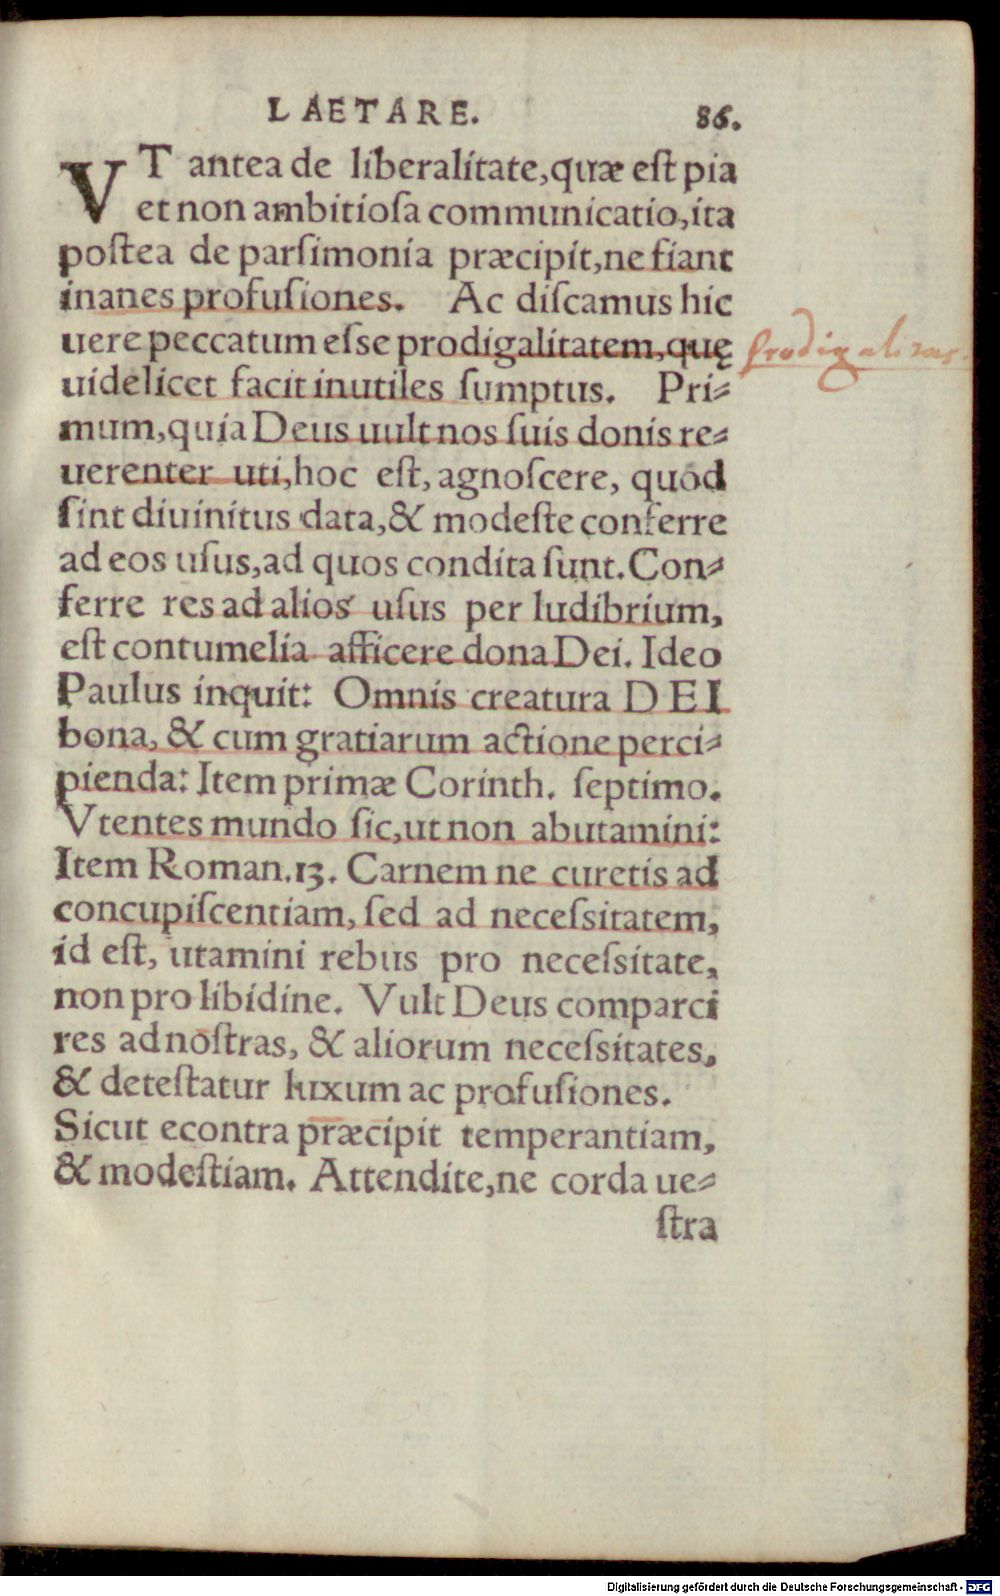 LAETARE. 86.
VT antea de liberalitate, quæ est pia
et non ambitiosa communicatio, ita
postea de parsimonia præcipit, ne fiant
inanes profusiones. Ac discamus hic
uere peccatum esse prodigalitatem, quę
prodigalitas.
uidelicet facit inutiles sumptus. Pri-
mum, quia Deus uult nos suis donis re-
uerenter uti, hoc est, agnoscere, quòd
sint diuinitus data, & modeste conferre
ad eos usus, ad quos condita sunt. Con-
ferre res ad alios usus per ludibrium,
est contumelia afficere dona Dei. Ideo
Paulus inquit: Omnis creatura DEI
bona, & cum gratiarum actione perci-
pienda: Item primæ Corinth. septimo.
Vtentes mundo sic, ut non abutamini:
Item Roman. 13. Carnem ne curetis ad
concupiscentiam, sed ad necessitatem,
id est, utamini rebus pro necessitate,
non pro libidine. Vult Deus comparci
res ad nostras, & aliorum necessitates,
& detestatur luxum ac profusiones.
Sicut econtra præcipit temperantiam,
& modestiam. Attendite, ne corda ue-
stra
Digitalisierung gefördert durch die Deutsche Forschungsgemeinschaft - DFG